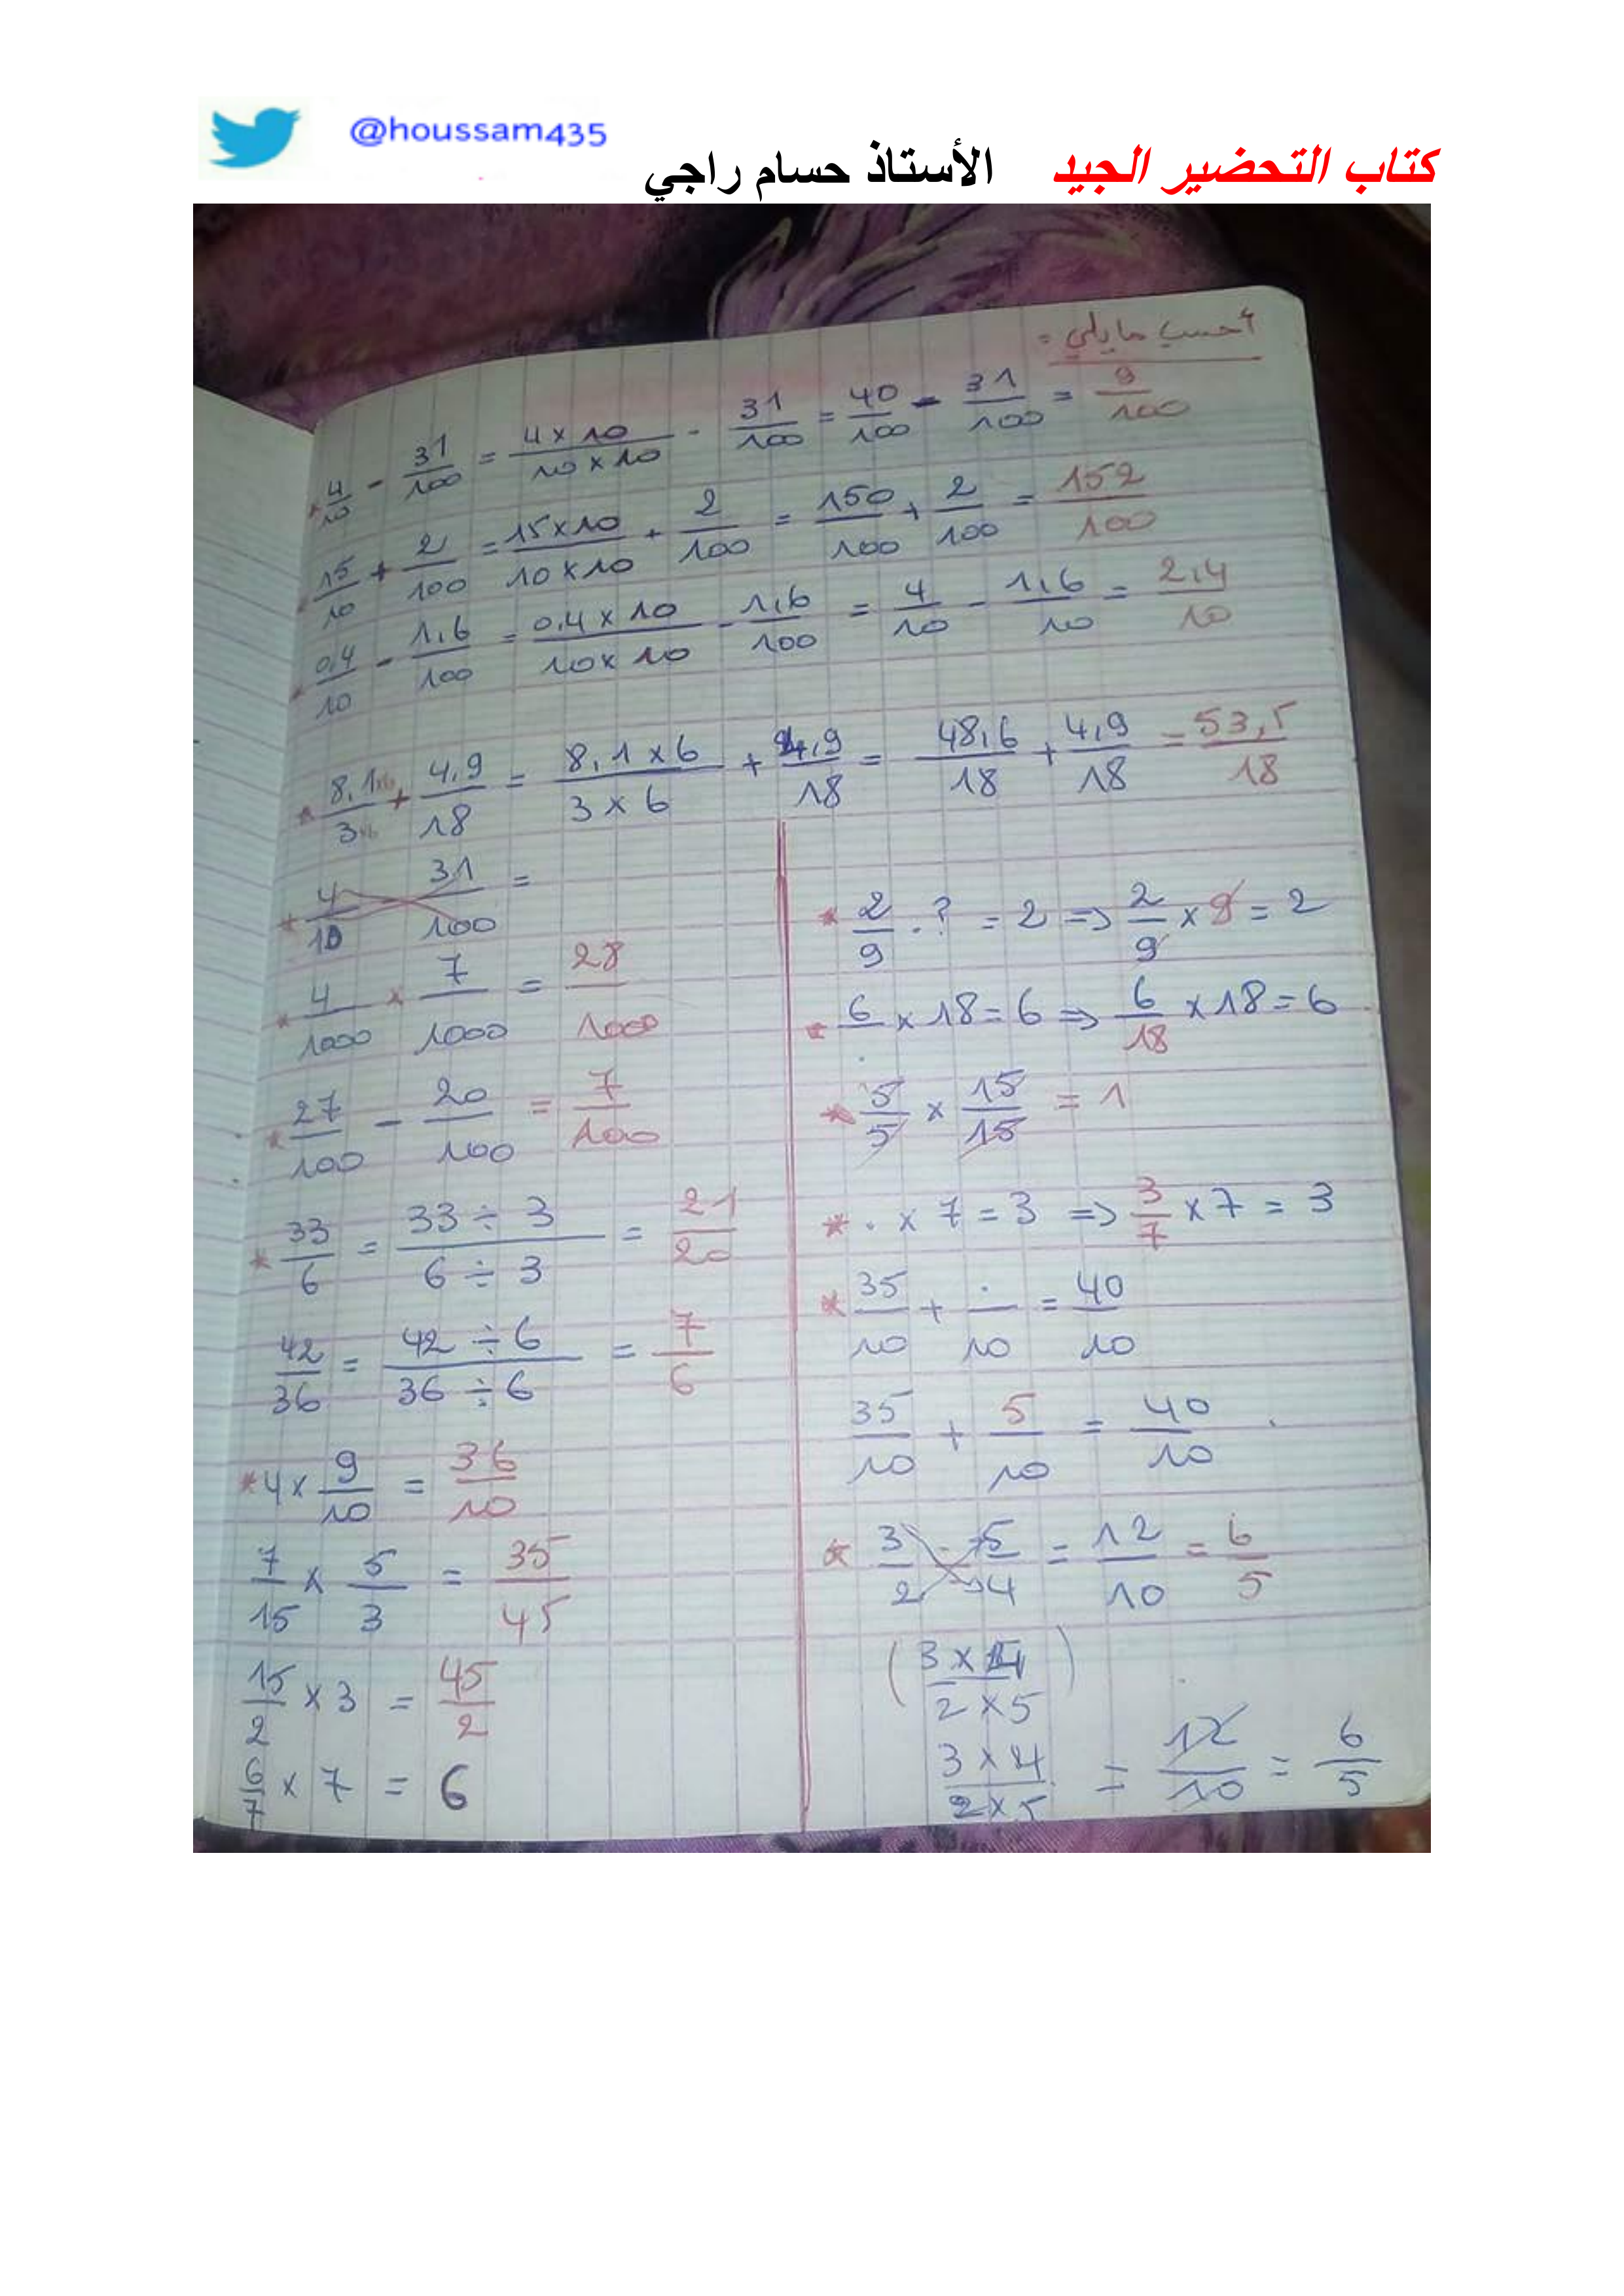 @houssam435
كتاب التحضير الجيد الأستاذ حسام راجي
أحسب ما يلي :
* 4/10 - 31/100 = 4 x 10 / 10 x 10 - 31/100 = 40/100 - 31/100 = 9/100
* 15/10 + 2/100 = 15 x 10 / 10 x 10 + 2/100 = 150/100 + 2/100 = 152/100
* 0,4/10 - 1,6/100 = 0,4 x 10 / 10 x 10 - 1,6/100 = 4/10 - 1,6/10 = 2,4/10
* 8,1/3 + 4,9/18 = 8,1 x 6 / 3 x 6 + 4,9/18 = 48,6/18 + 4,9/18 = 53,5/18
* 4/10 - 31/100 =
* 4/1000 x 7/1000 = 28/1000
* 27/100 - 20/100 = 7/100
* 33/6 = 33 ÷ 3 / 6 ÷ 3 = 21/20
42/36 = 42 ÷ 6 / 36 ÷ 6 = 7/6
* 4 x 9/10 = 36/10
7/15 x 5/3 = 35/45
15/2 x 3 = 45/2
6/7 x 7 = 6
* 2/9 . ? = 2 => 2/9 x 9 = 2
* 6/. x 18 = 6 => 6/18 x 18 = 6
* 5/5 x 15/15 = 1
* . x 7 = 3 => 3/7 x 7 = 3
* 35/10 + ./10 = 40/10
35/10 + 5/10 = 40/10
* 3/2 - 5/4 = 12/10 = 6/5
( 3 x 4 / 2 x 5 )
3 x 4 / 2 x 5 = 12/10 = 6/5